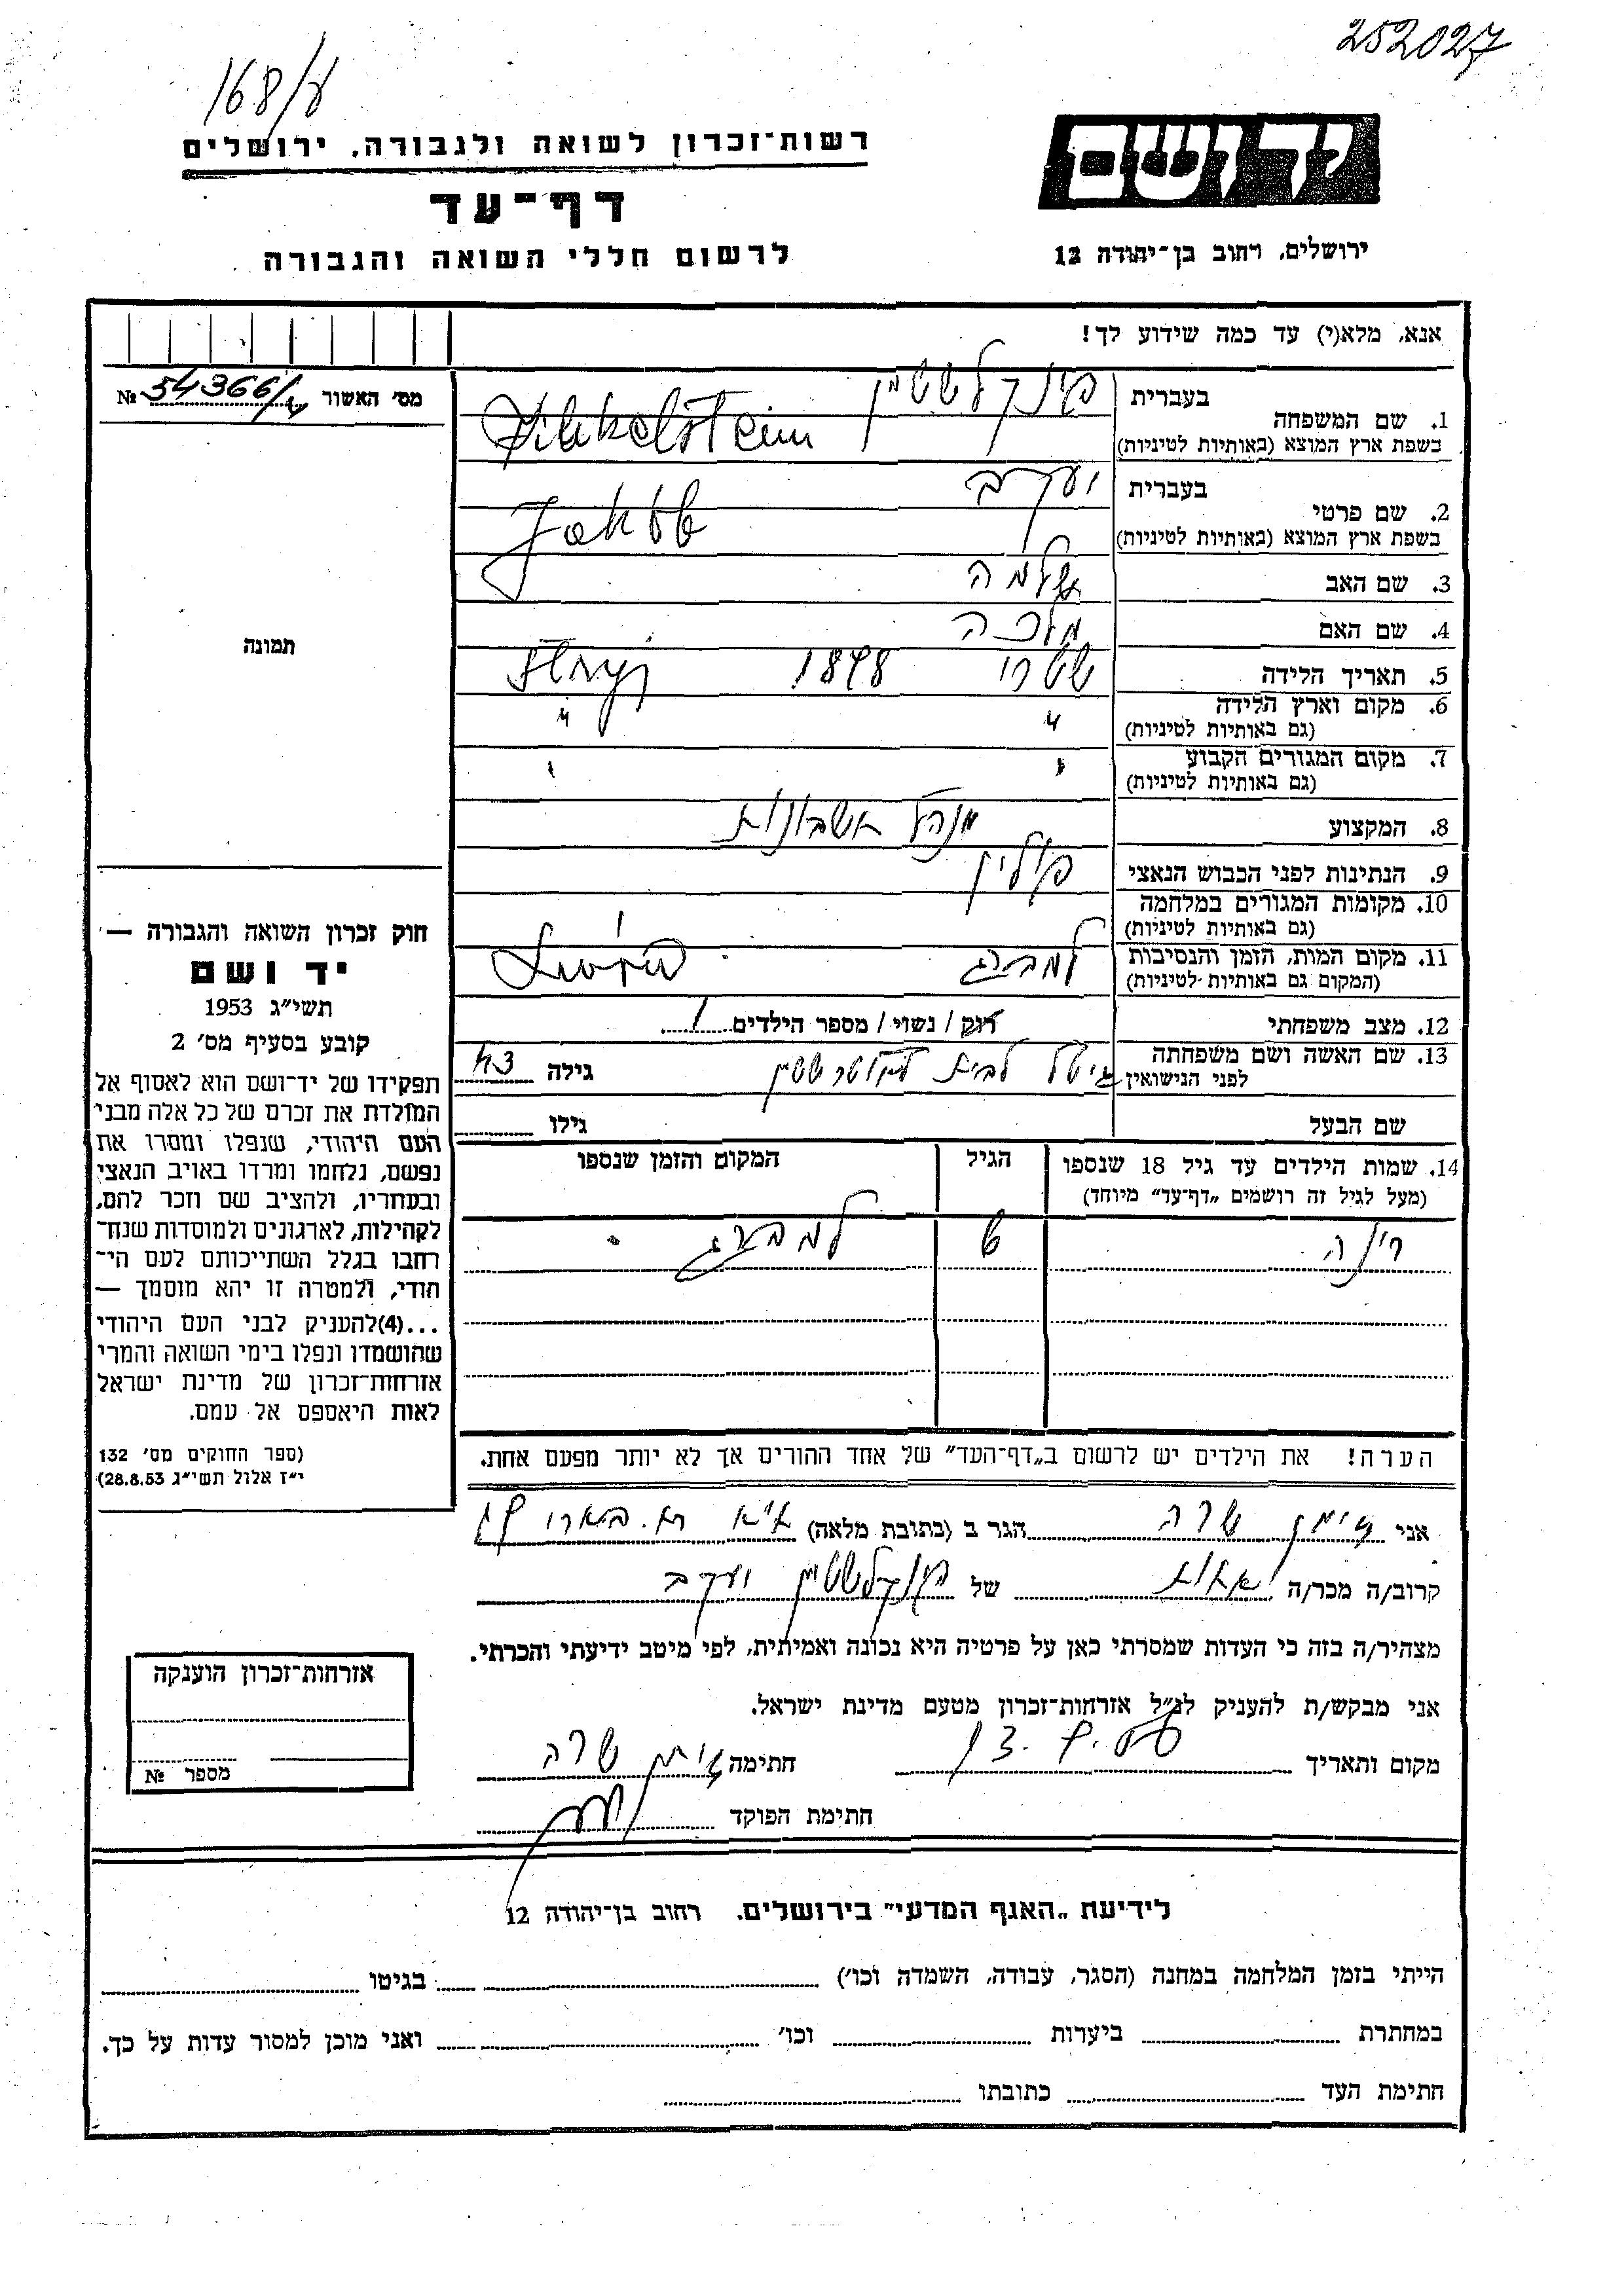 252027
168/ע
יד ושם
רשות־זכרון לשואה ולגבורה, ירושלים
דף־עד
ירושלים, רחוב בן־יהודה 12
לרשום חללי השואה והגבורה
אנא, מלא(י) עד כמה שידוע לך!
מס׳ האשור № 54366/
1. שם המשפחה
בעברית פינקלשטיין
בשפת ארץ המוצא (באותיות לטיניות) Finkelstein
2. שם פרטי
בעברית יעקב
בשפת ארץ המוצא (באותיות לטיניות) Jakób
3. שם האב שלמה
4. שם האם מלכה
5. תאריך הלידה סטרי 1898 Stryj
6. מקום וארץ הלידה " "
(גם באותיות לטיניות)
7. מקום המגורים הקבוע " "
(גם באותיות לטיניות)
8. המקצוע מנהל חשבונות
9. הנתינות לפני הכבוש הנאצי פולין
10. מקומות המגורים במלחמה
(גם באותיות לטיניות)
11. מקום המות, הזמן והנסיבות למברג Lwów
(המקום גם באותיות לטיניות)
12. מצב משפחתי רוק / נשוי / מספר הילדים 1
13. שם האשה ושם משפחתה
לפני הנישואין גיטל לבית גילה 43
שם הבעל גילו
14. שמות הילדים עד גיל 18 שנספו הגיל המקום והזמן שנספו
(מעל לגיל זה רושמים „דף־עד” מיוחד)
רינה 6 למברג
הערה! את הילדים יש לרשום ב„דף־העד” של אחד ההורים אך לא יותר מפעם אחת.
תמונה
חוק זכרון השואה והגבורה —
יד ושם
תשי״ג 1953
קובע בסעיף מס׳ 2
תפקידו של יד־ושם הוא לאסוף אל
המולדת את זכרם של כל אלה מבני
העם היהודי, שנפלו ומסרו את
נפשם, נלחמו ומרדו באויב הנאצי
ובעוזריו, ולהציב שם וזכר להם,
לקהילות, לארגונים ולמוסדות שנח־
רבו בגלל השתייכותם לעם הי־
הודי, ולמטרה זו יהא מוסמך —
...(4) להעניק לבני העם היהודי
שהושמדו ונפלו בימי השואה והמרי
אזרחות־זכרון של מדינת ישראל
לאות היאספם אל עמם.
(ספר החוקים מס׳ 132
י״ז אלול תשי״ג 28.8.53)
אני שרה הגר ב (כתובת מלאה) ת״א
קרוב/ה מכר/ה אחות של פינקלשטיין יעקב
מצהיר/ה בזה כי העדות שמסרתי כאן על פרטיה היא נכונה ואמיתית, לפי מיטב ידיעתי והכרתי.
אני מבקש/ת להעניק לנ״ל אזרחות־זכרון מטעם מדינת ישראל.
מקום ותאריך חתימה שרה
חתימת הפוקד
אזרחות־זכרון הוענקה
מספר №
לידיעת „האגף המדעי” בירושלים. רחוב בן־יהודה 12
הייתי בזמן המלחמה במחנה (הסגר, עבודה, השמדה וכו׳) בגיטו
במחתרת ביערות וכו׳ ואני מוכן למסור עדות על כך.
חתימת העד כתובתו